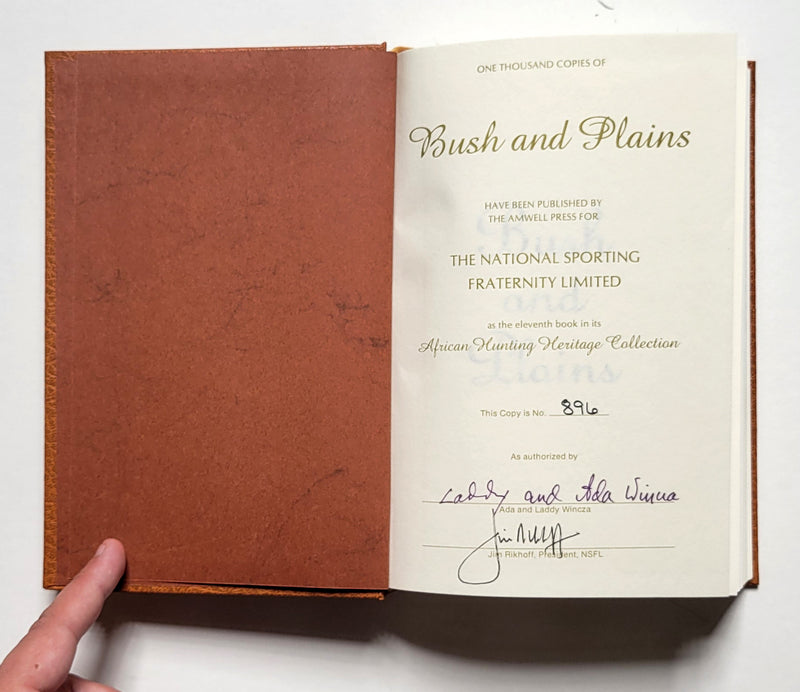 ONE THOUSAND COPIES OF
Bush and Plains
HAVE BEEN PUBLISHED BY
THE AMWELL PRESS FOR
THE NATIONAL SPORTING
FRATERNITY LIMITED
as the eleventh book in its
African Hunting Heritage Collection
This Copy is No. 896
As authorized by
Laddy and Ada Wincza
Ada and Laddy Wincza
Jim Rikhoff
Jim Rikhoff, President, NSFL